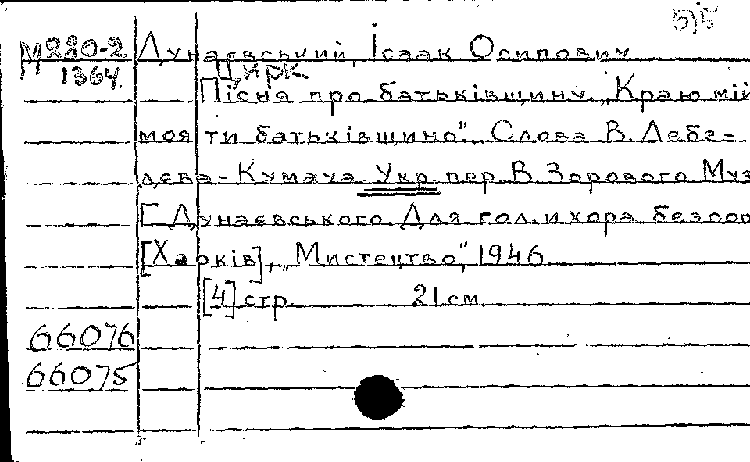 М220-2 Дунаєвський, Ісаак Осипович
1364. Цирк
Пісня про батьківщину. „Краю мій
моя ти батьківщино". Слова В. Лебе-
дєва-Кумача Укр. пер. В. Зорового Муз
І. Дунаєвського. Для гол. и хора без соп
[Харків], „Мистецтво", 1946
[4] стр. 21 см
66076
66075